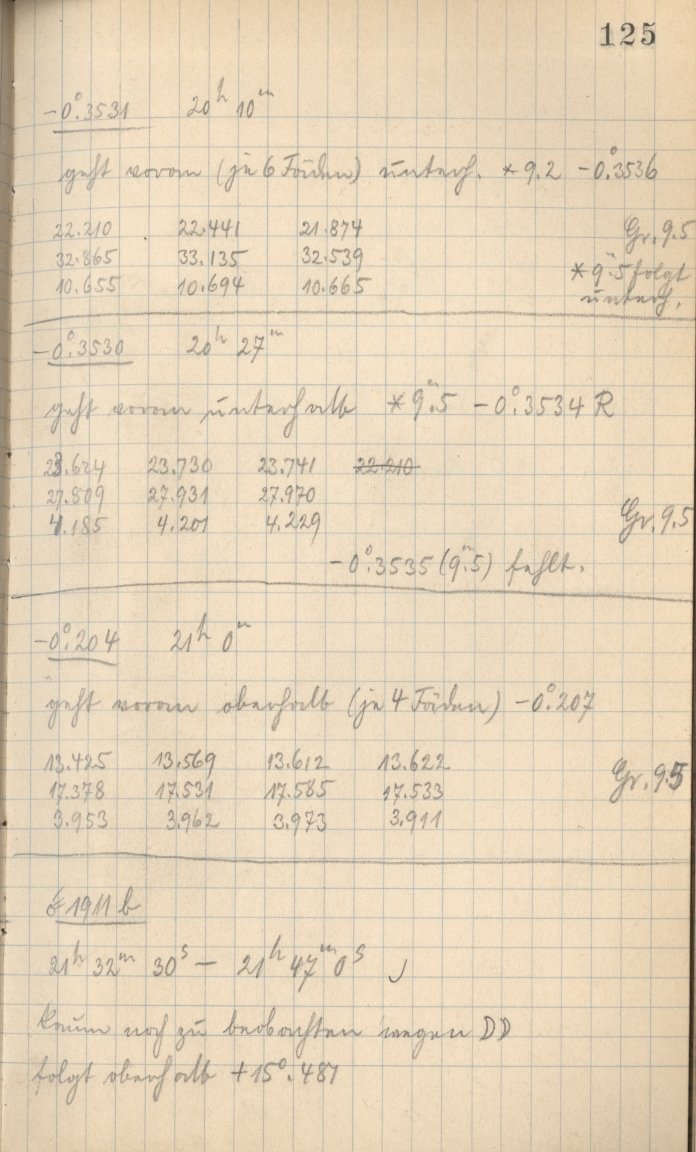 125
-0°.3531 20h 10m
geht voran (je 6 Fäden) unterh. * 9.2 -0°.3536
22.210 22.441 21.874 Gr. 9.5
32.865 33.135 32.539 * 9m.5 folgt
10.655 10.694 10.665 unterh.
-0°.3530 20h 27m
geht voran unterhalb * 9m.5 -0°.3534 R
23.624 23.730 23.741 22.210
27.809 27.931 27.970
4.185 4.201 4.229 Gr. 9.5
-0°.3535 (9m.5) fehlt.
-0°.204 21h 0m
geht voran oberhalb (je 4 Fäden) -0°.207
13.425 13.569 13.612 13.622
17.378 17.531 17.585 17.533 Gr. 9.5
3.953 3.962 3.973 3.911
1911 b
21h 32m 30s — 21h 47m 0s
kaum noch zu beobachten wegen DD
folgt oberhalb +15°.487